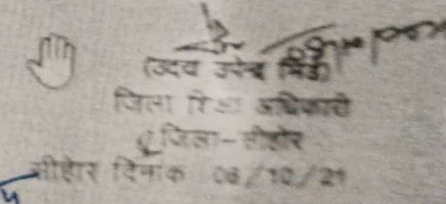 (उदय उपेन्द्र भिडे)
जिला शिक्षा अधिकारी
जिला-सीहोर
सीहोर दिनांक 08/10/21